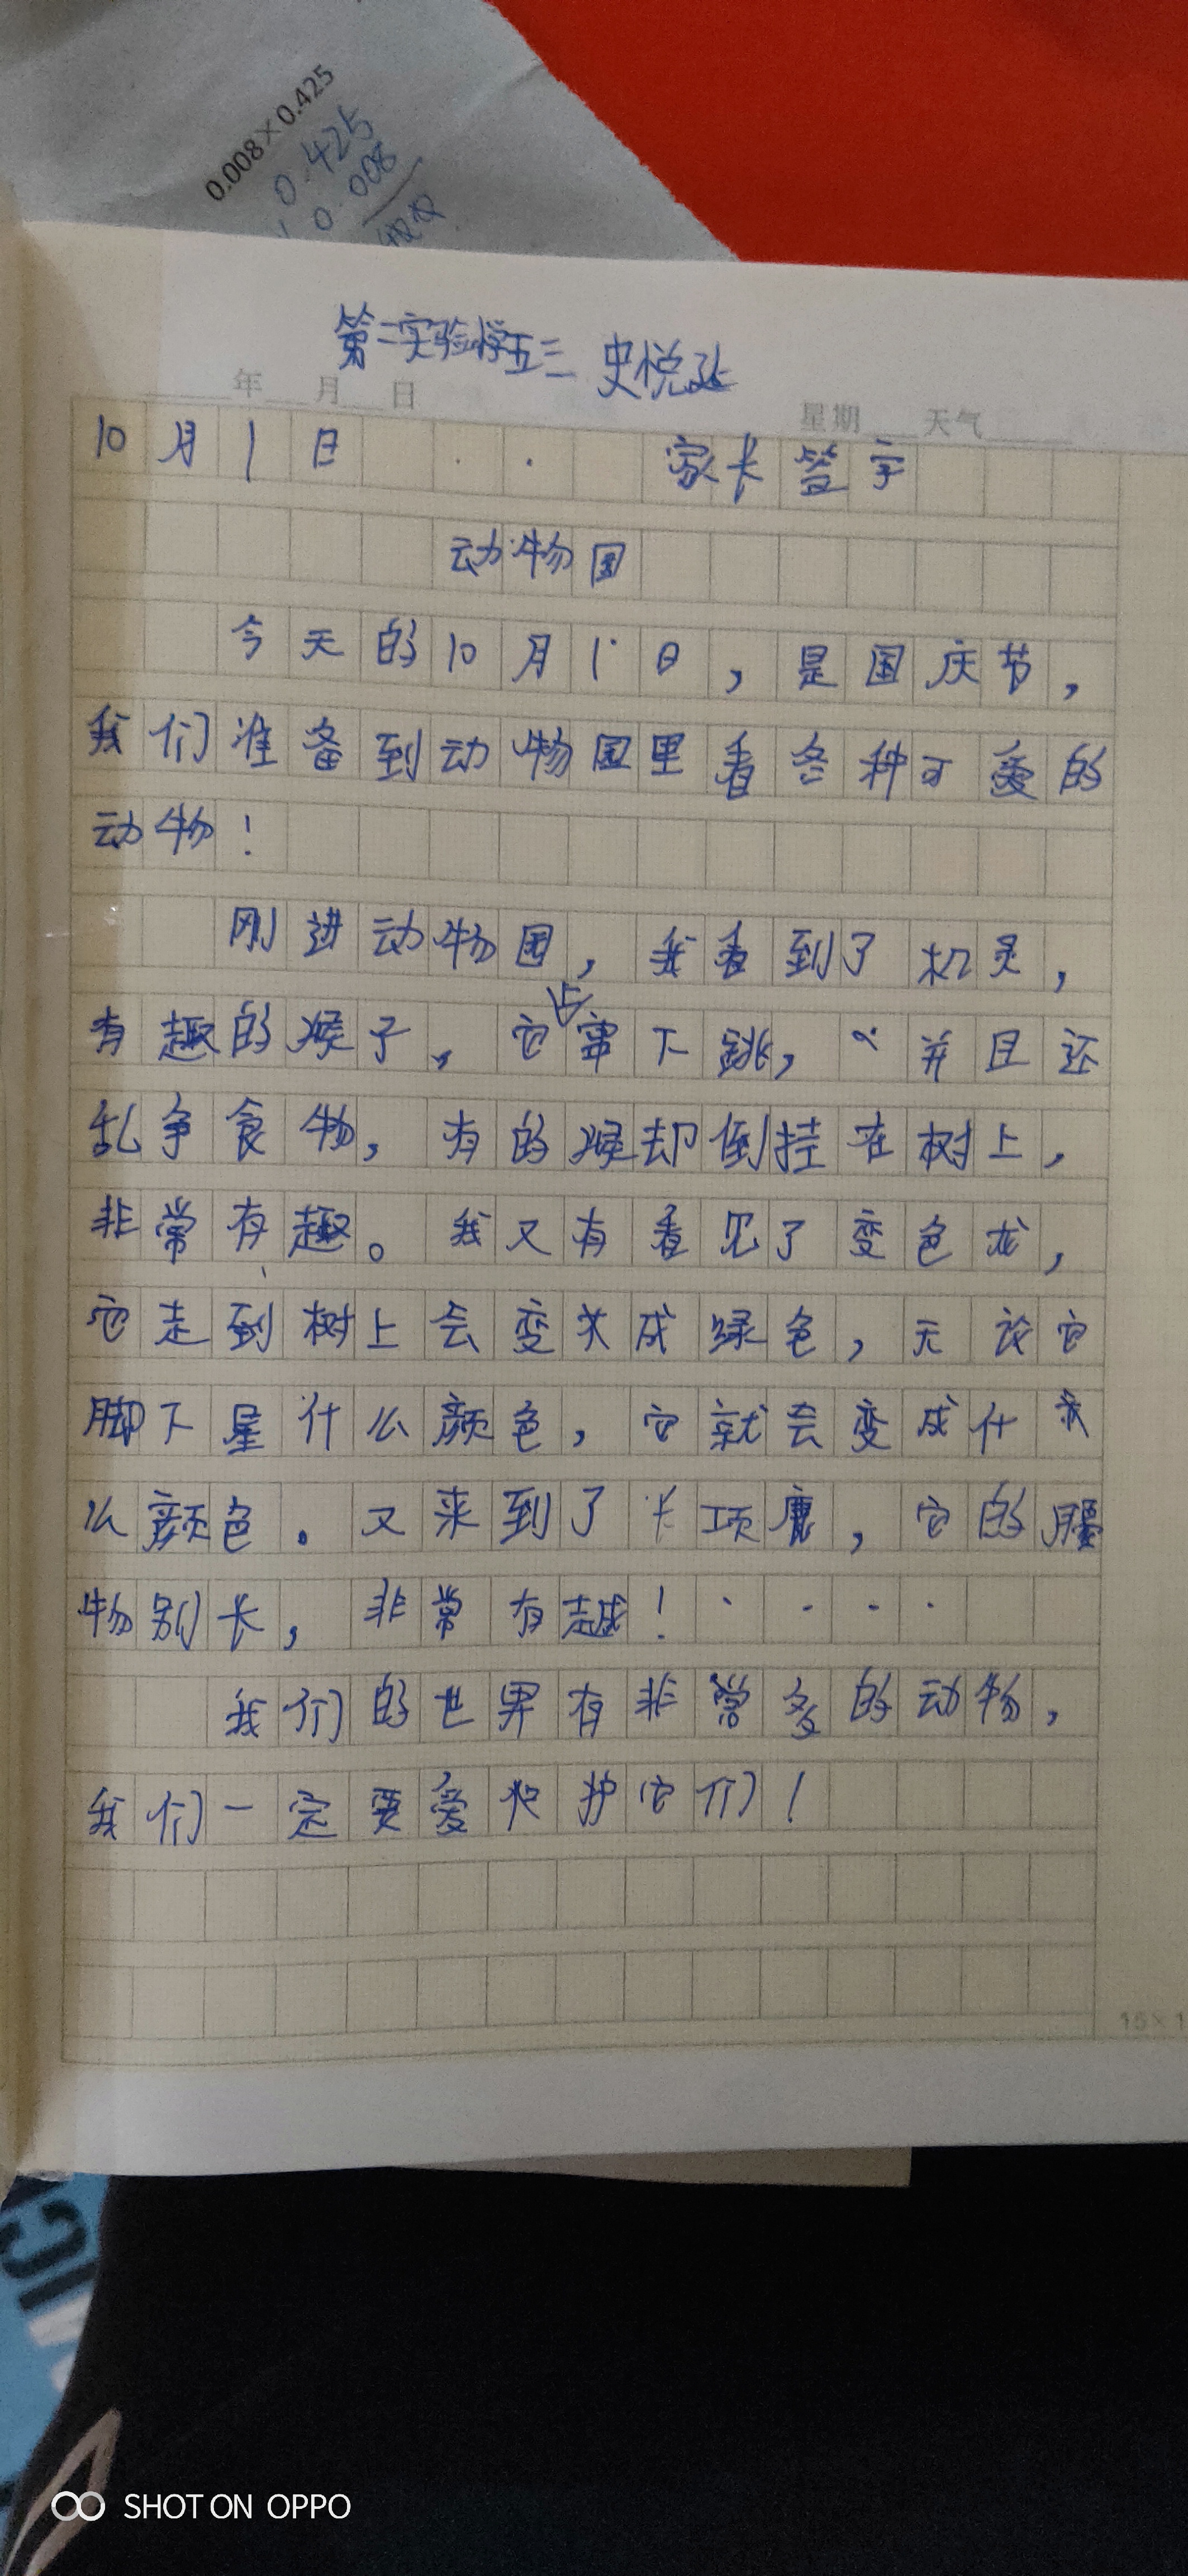 0.008×0.425
0.425
0.008
第二实验学五三 史悦
年 月 日
星期 天气
10月1日 家长签字
动物园
今天的10月1日,是国庆节,
我们准备到动物园里看各种可爱的
动物!
刚进动物园,我看到了机灵,
有趣的猴子,它上窜下跳,并且还
乱争食物,有的猴却倒挂在树上,
非常有趣。我又有看见了变色龙,
它走到树上会变成绿色,无论它
脚下是什么颜色,它就会变成什
么颜色。又来到了长项鹿,它的腿
物别长,非常有越!
我们的世界有非常多的动物,
我们一定要爱护它们!
15×1
SHOT ON OPPO